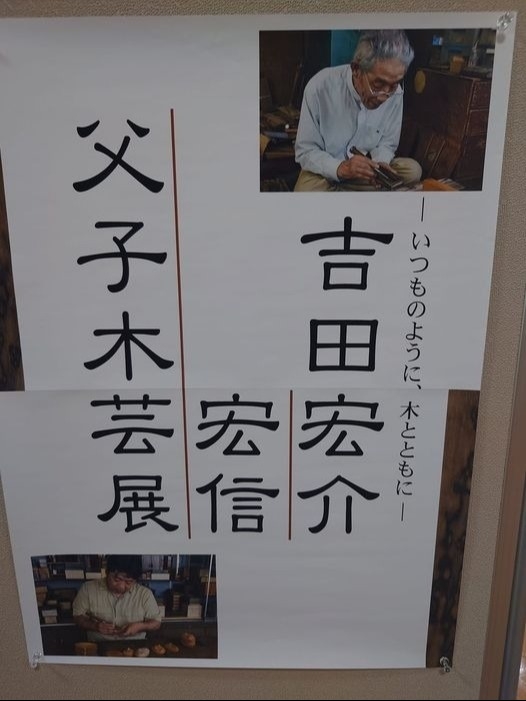 ―いつものように、木とともに―
吉田宏介
宏信
父子木芸展